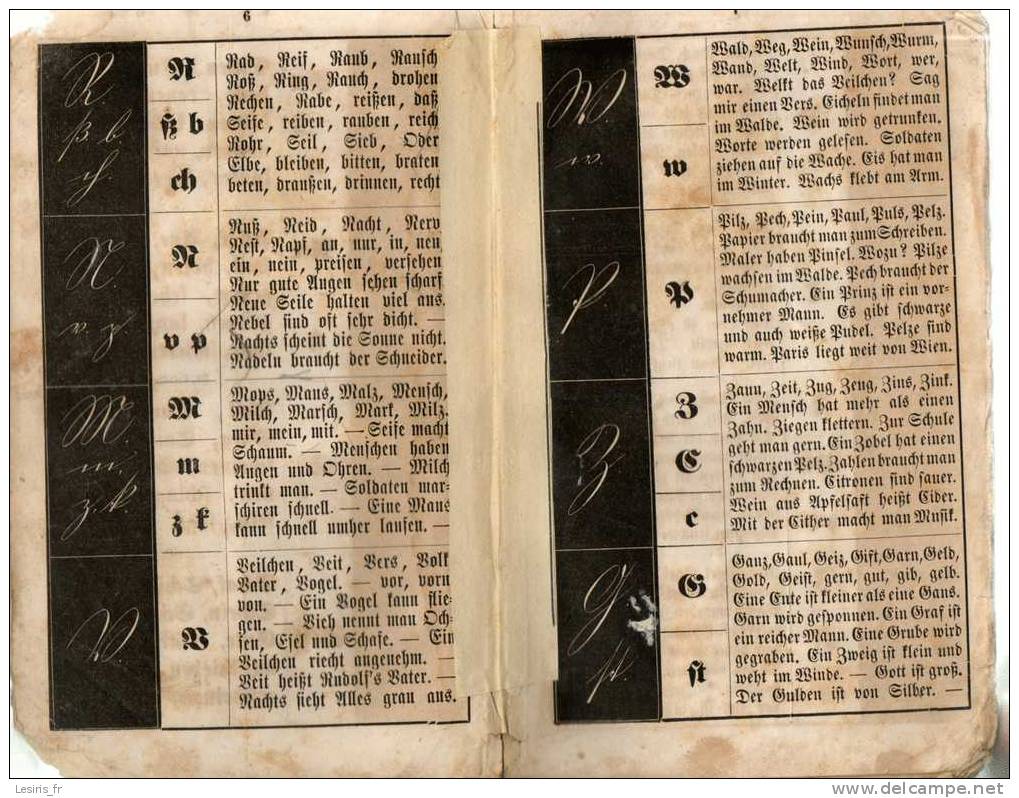 6
R
Rad, Reif, Raub, Rausch
Roß, Ring, Rauch, drohen
Rechen, Rabe, reißen, daß
ß b
Seife, reiben, rauben, reich
Rohr, Seil, Sieb, Oder
ch
Elbe, bleiben, bitten, braten
beten, draußen, drinnen, recht
N
Nuß, Neid, Nacht, Nerv
Nest, Napf, an, nur, in, neu
ein, nein, preisen, versehen
Nur gute Augen sehen scharf
Neue Seile halten viel aus.
Nebel sind oft sehr dicht. —
v p
Nachts scheint die Sonne nicht.
Nadeln braucht der Schneider.
M
Mops, Maus, Malz, Mensch,
Milch, Marsch, Mark, Milz.
mir, mein, mit. — Seife macht
m
Schaum. — Menschen haben
Augen und Ohren. — Milch
trinkt man. — Soldaten mar-
z k
schiren schnell. — Eine Maus
kann schnell umher laufen. —
V
Veilchen, Veit, Vers, Volk
Vater, Vogel. — vor, vorn
von. — Ein Vogel kann flie-
gen. — Vieh nennt man Och-
sen, Esel und Schafe. — Ein
Veilchen riecht angenehm. —
Veit heißt Rudolf's Vater. —
Nachts sieht Alles grau aus.
W
Wald, Weg, Wein, Wunsch, Wurm,
Wand, Welt, Wind, Wort, wer,
war. Welkt das Veilchen? Sag
mir einen Vers. Eicheln findet man
im Walde. Wein wird getrunken.
w
Worte werden gelesen. Soldaten
ziehen auf die Wache. Eis hat man
im Winter. Wachs klebt am Arm.
P
Pilz, Pech, Pein, Paul, Puls, Pelz.
Papier braucht man zum Schreiben.
Maler haben Pinsel. Wozu? Pilze
wachsen im Walde. Pech braucht der
Schumacher. Ein Prinz ist ein vor-
nehmer Mann. Es gibt schwarze
und auch weiße Pudel. Pelze sind
warm. Paris liegt weit von Wien.
Z
Zaun, Zeit, Zug, Zeug, Zins, Zink.
Ein Mensch hat mehr als einen
Zahn. Ziegen klettern. Zur Schule
C
geht man gern. Ein Zobel hat einen
schwarzen Pelz. Zahlen braucht man
zum Rechnen. Citronen sind sauer.
c
Wein aus Apfelsaft heißt Cider.
Mit der Cither macht man Musik.
G
Ganz, Gaul, Geiz, Gift, Garn, Geld,
Gold, Geist, gern, gut, gib, gelb.
Eine Ente ist kleiner als eine Gans.
Garn wird gesponnen. Ein Graf ist
ein reicher Mann. Eine Grube wird
st
gegraben. Ein Zweig ist klein und
weht im Winde. — Gott ist groß.
Der Gulden ist von Silber. —
Lesiris_fr
www.delcampe.net